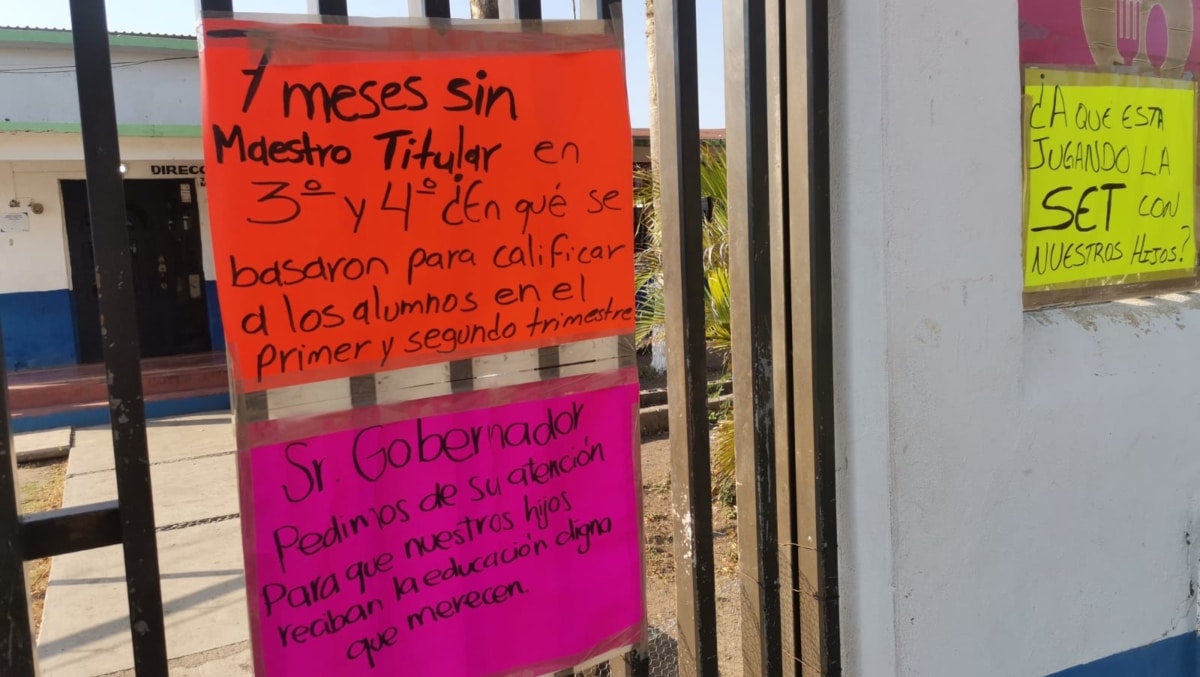 7 meses sin
Maestro Titular en
3º y 4º ¿En qué se
basaron para calificar
a los alumnos en el
primer y segundo trimestre
Sr. Gobernador
Pedimos de su atención
Para que nuestros hijos
reciban la educación digna
que merecen.
DIRECC
¿A QUÉ ESTA
JUGANDO LA
SET CON
NUESTROS HIJOS?